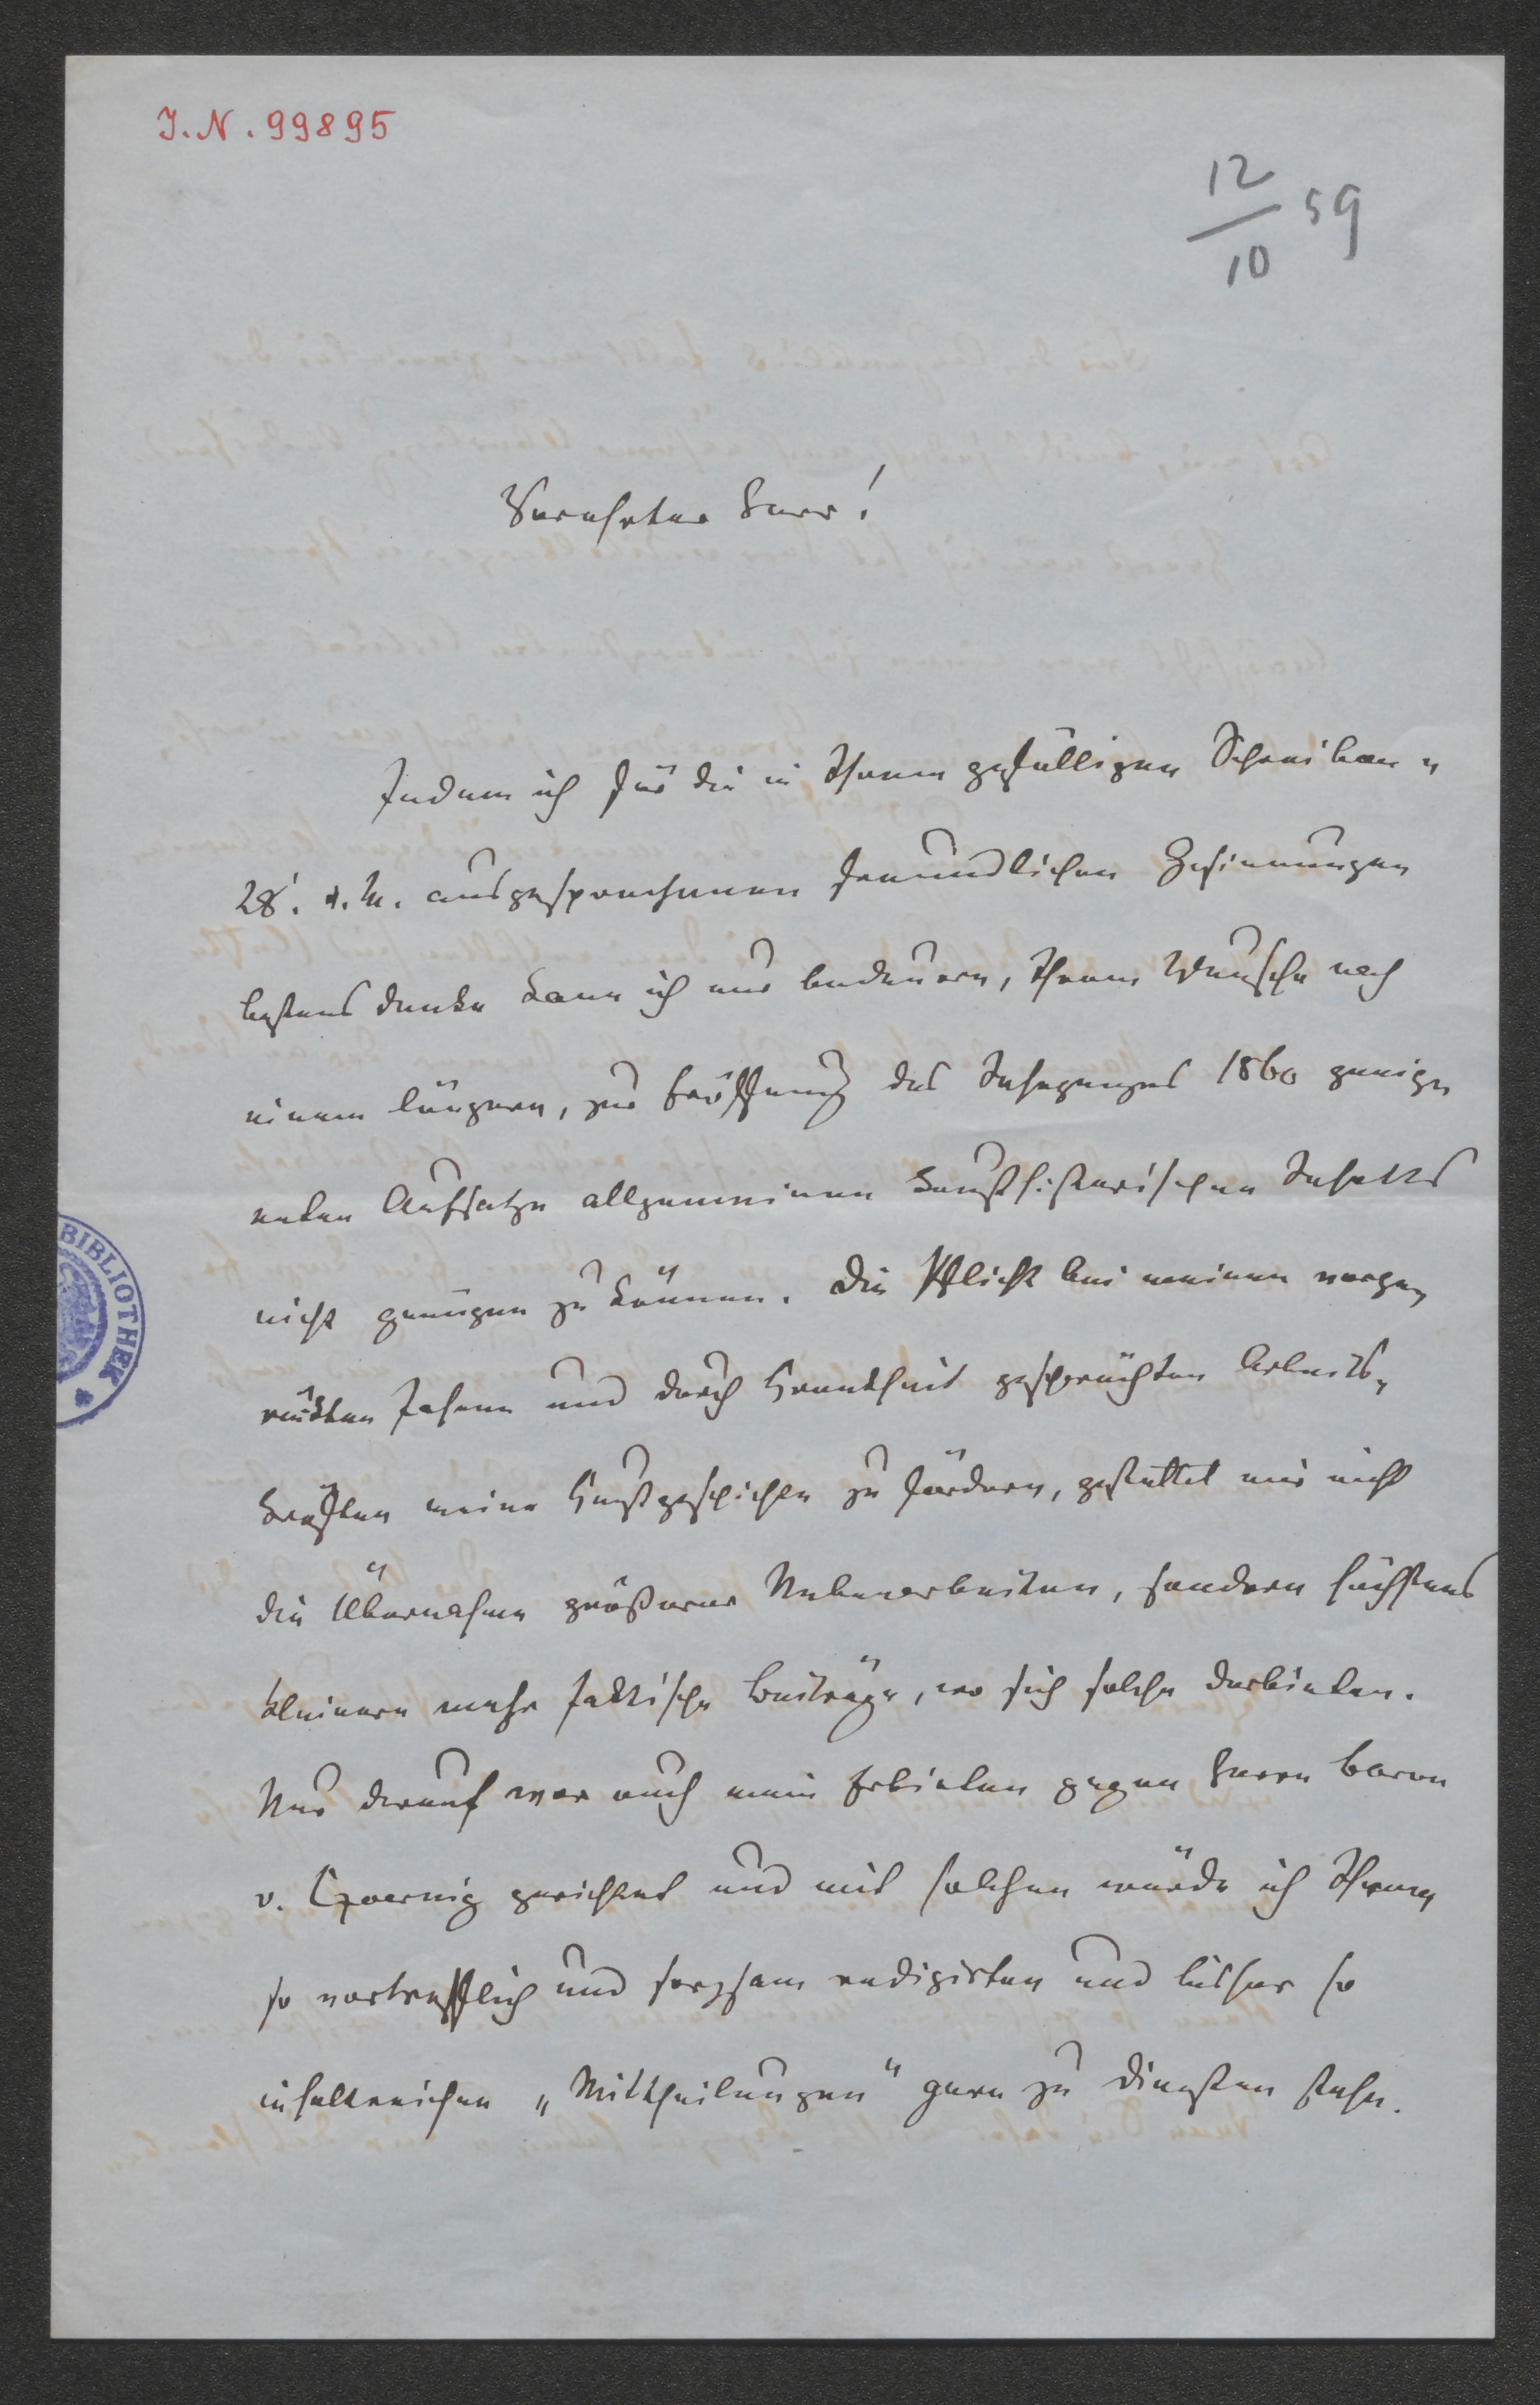 I.N. 99895
12
10 59
Verehrter Herr!
Indem ich für die in Ihrem gefälligen Schreiben v
28. v. M. ausgesprochenen freundlichen Gesinnungen
bestens danke kann ich nur bedauern, Ihrem Wunsche nach
einem längern, zur Eröffnung des Jahrganges 1860 geeig-
neten Aufsatze allgemeinen kunsthistorischen Inhalts
nicht genügen zu können. Die Pflicht bei meinen vorge-
rückten Jahren und durch Krankheit geschwächten Arbeits-
kräften meine Kunstgeschichte zu fördern, gestattet mir nicht
die Übernahme größerer Nebenarbeiten, sondern höchstens
kleinere mehr faktische Beiträge, wo sich solche darbieten.
Nur darauf war auch mein Erbieten gegen Herrn Baron
v. Czoernig gerichtet und mit solchen würde ich Ihren
so vortrefflich und sorgsam redigirten und bisher so
inhaltreichen „Mittheilungen" gern zu Diensten stehn.
BIBLIOTHEK